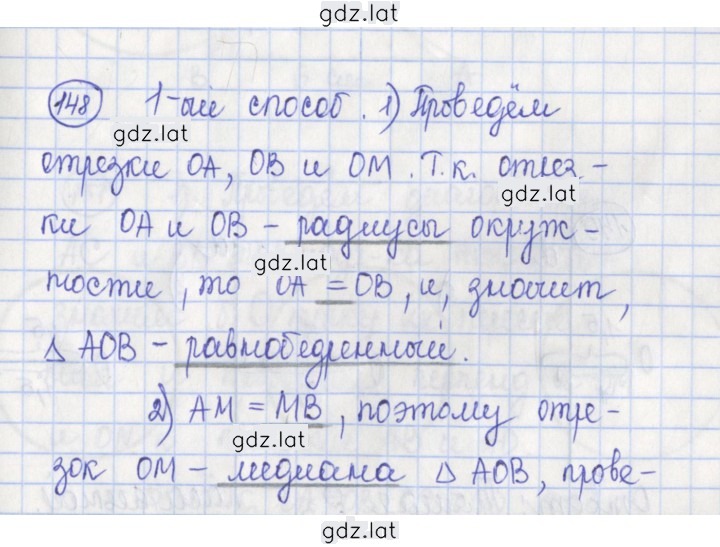 gdz.lat
148 1-ый способ. 1) Проведём
gdz.lat
отрезки ОА, ОВ и ОМ. Т.к. отрез-
gdz.lat
ки ОА и ОВ - радиусы окруж-
gdz.lat
ности, то ОА = ОВ, и, значит,
△ АОВ - равнобедренный.
2) АМ = МВ, поэтому отре-
gdz.lat
зок ОМ - медиана △ АОВ, прове-
gdz.lat